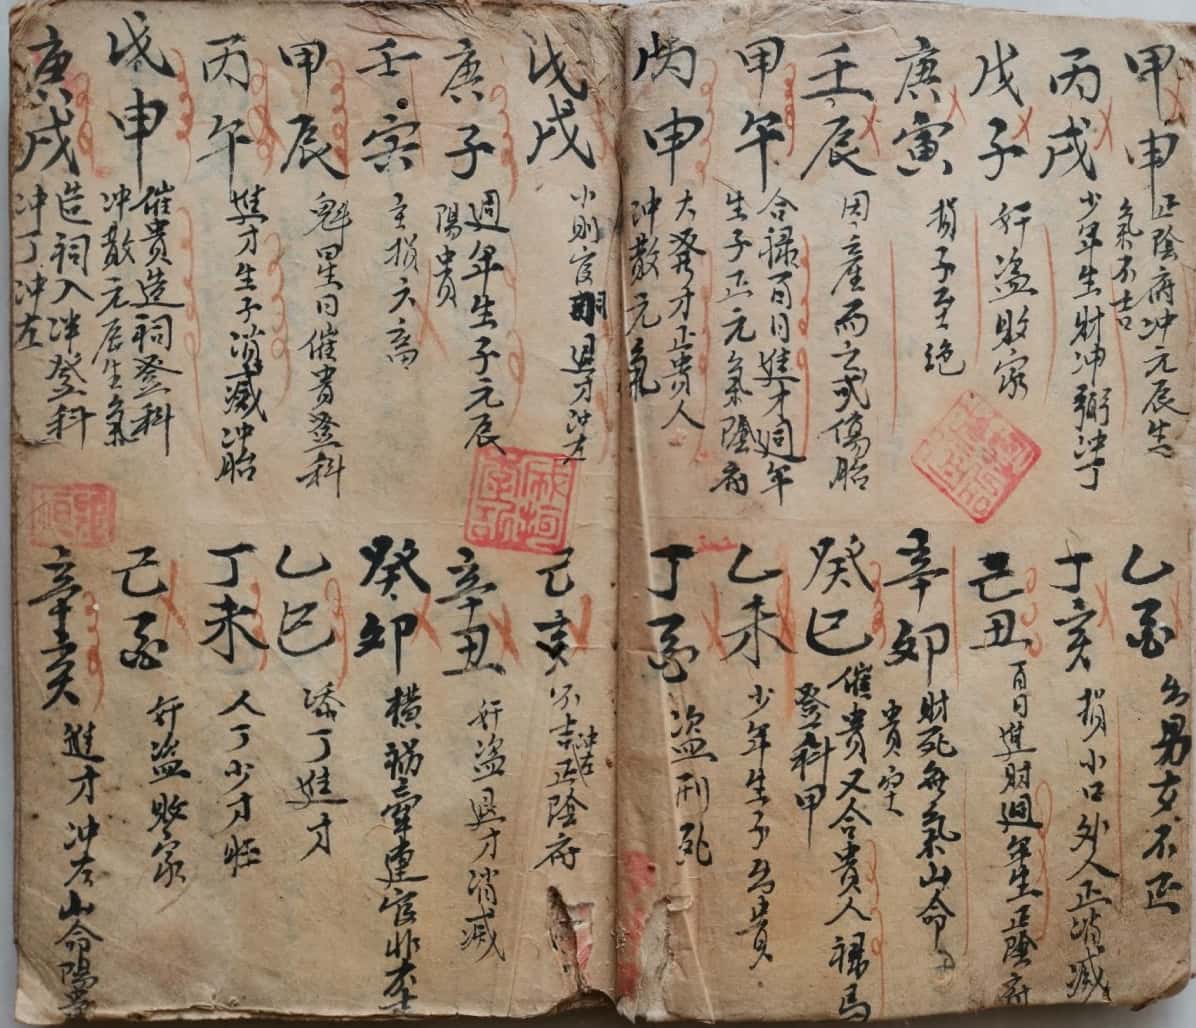 甲申 正陰府冲元辰生
氣不吉
丙戌 少年生財冲弼冲丁
戊子 奸盗敗家
庚寅 損子至绝
壬辰 因産而亡或傷胎
甲午 合禄百日進才週年
生子正元氣陰府
丙申 大發才正貴人
冲散元氣
乙酉 出男女不正
丁亥 損小口外人正消滅
己丑 百日進財週年生正陰府
辛卯 財死無氣山命
貴
癸巳 催貴又合貴人禄馬
登科甲
乙未 少年生子出貴
丁酉 盗刑死
戊戌 小則官 退才冲左
庚子 週年生子元辰
陽貴
壬寅 主損六畜
甲辰 魁星日催貴登科
丙午 進才生子消滅冲胎
戊申 催貴造祠登科
冲散元辰生氣
庚戌 造祠入泮登科
冲丁冲左
己亥 不吉正陰府
冲左
辛丑 奸盗退才消滅
癸卯 横禍牽連官非
乙巳 添丁進才
丁未 人丁少才旺
己酉 奸盗敗家
辛亥 進才冲左山命陽貴